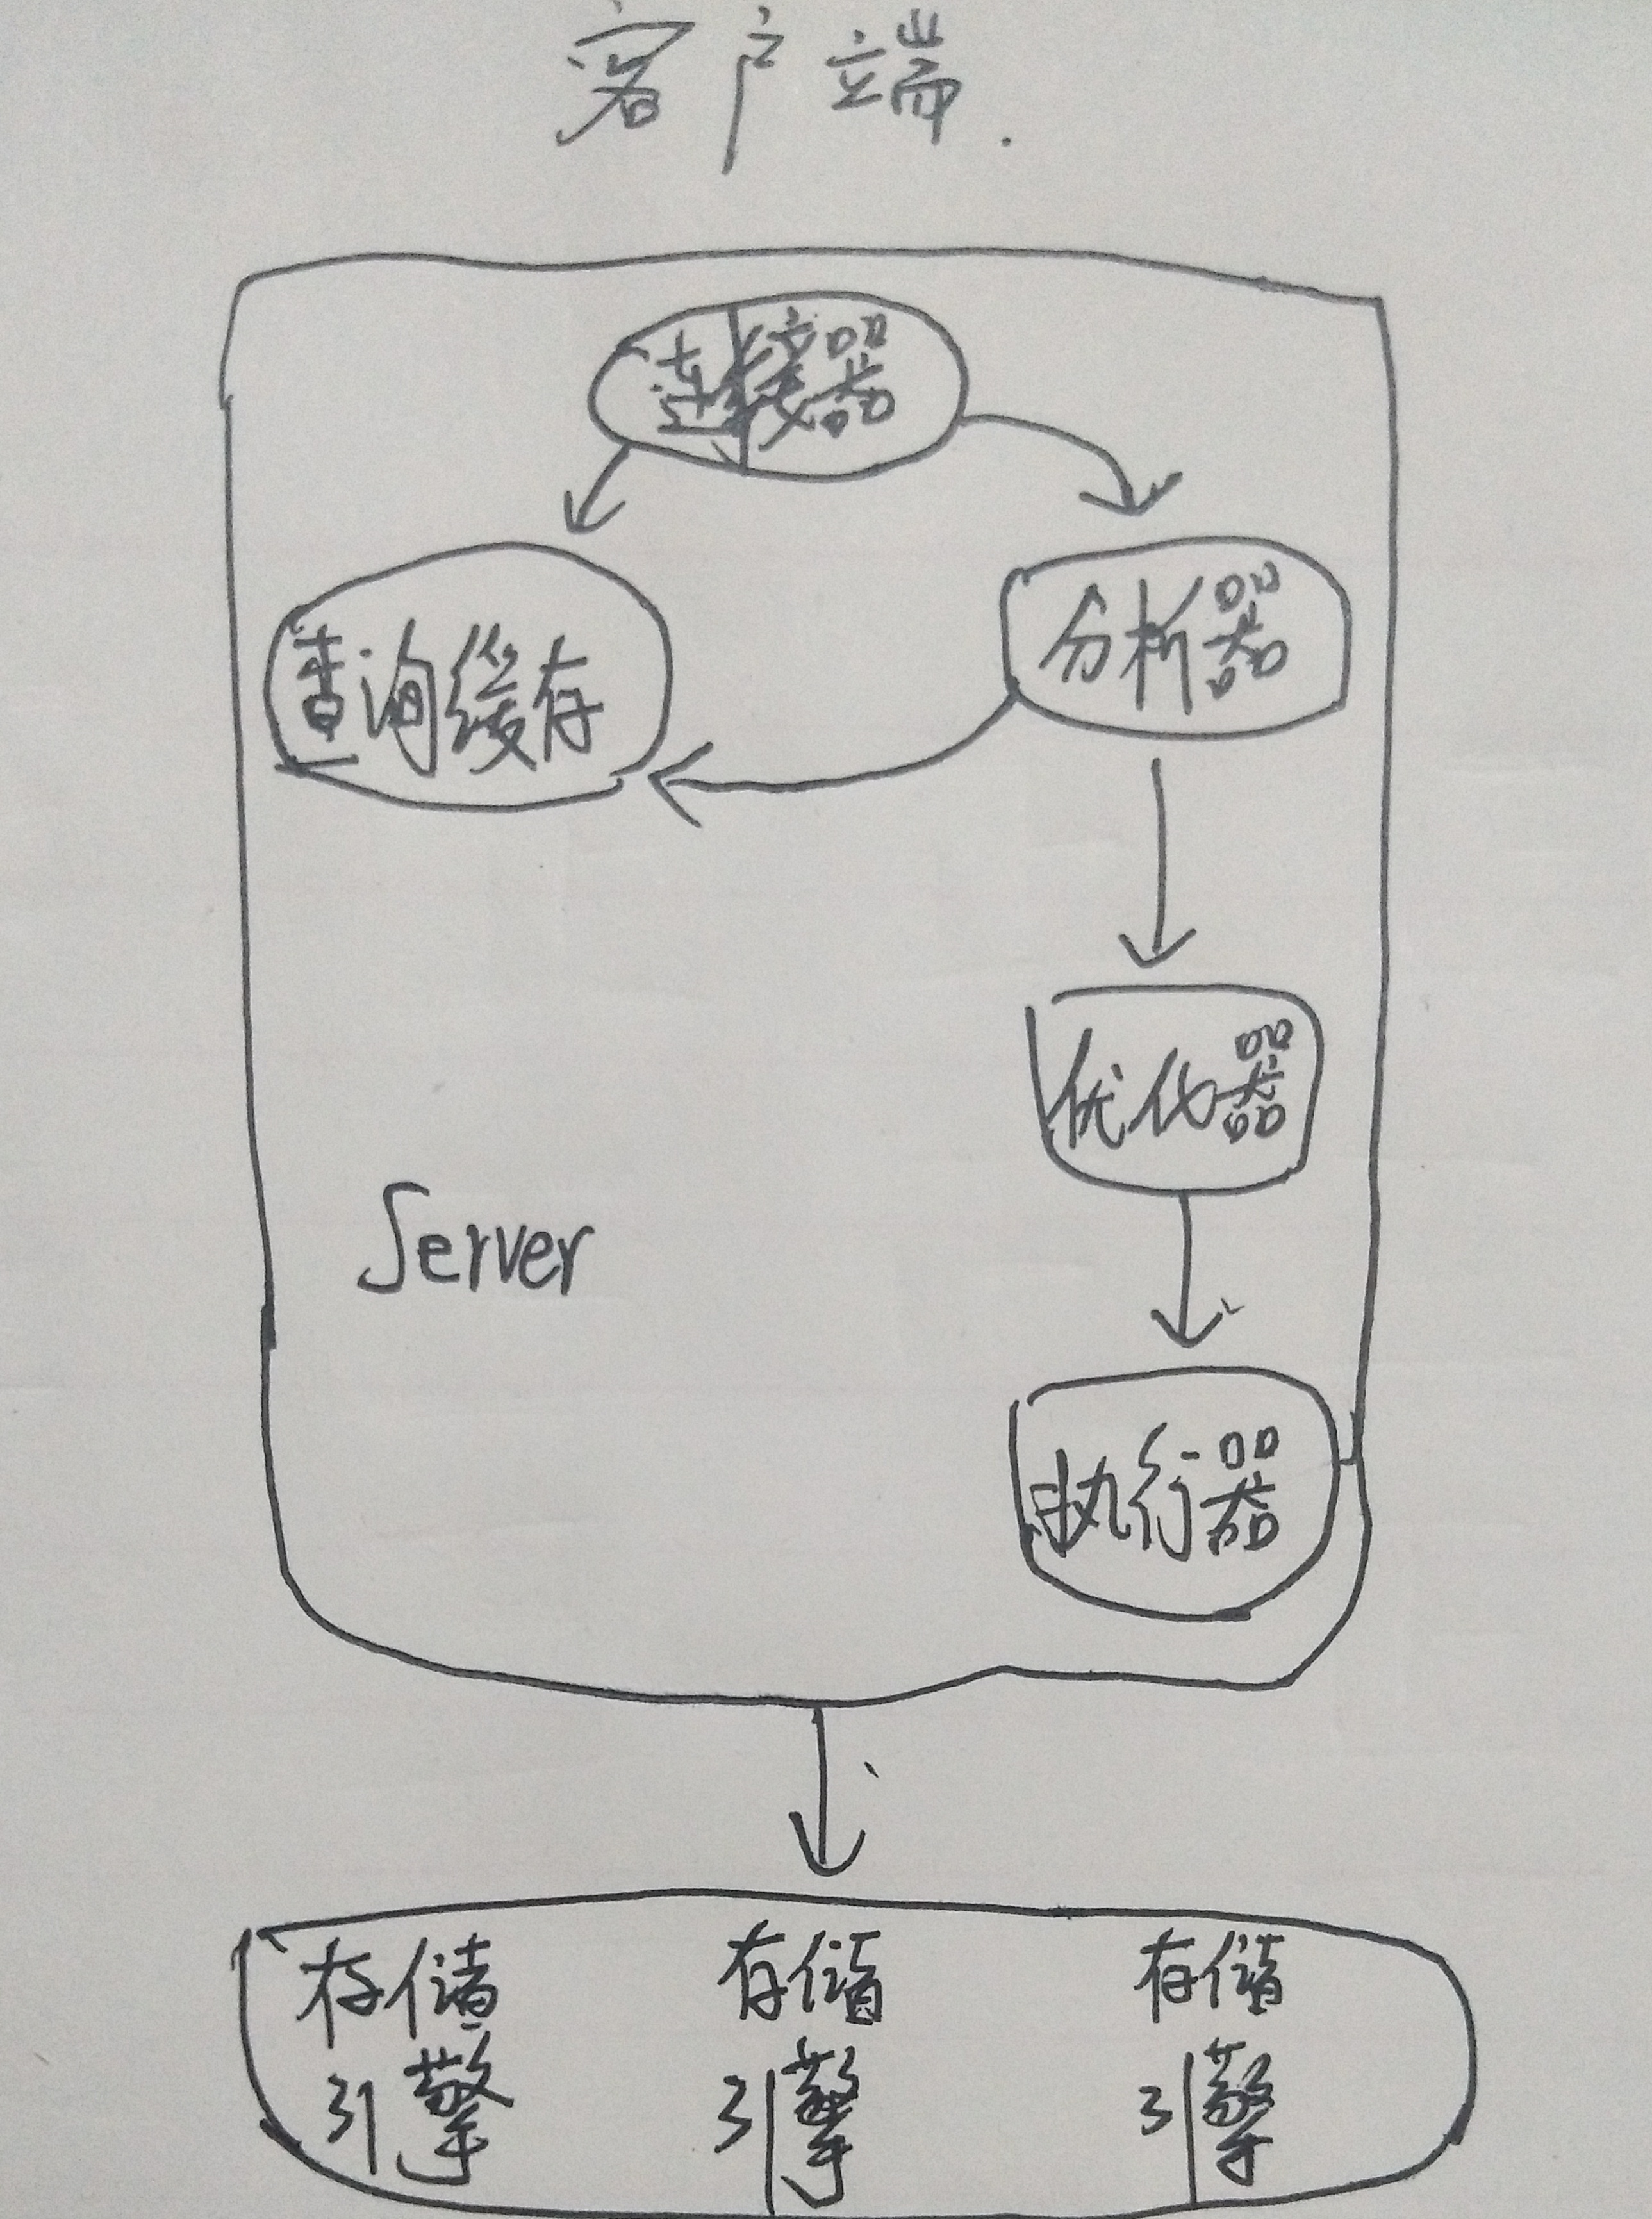 客户端.
连接器
查询缓存
分析器
优化器
Server
执行器
存储
引擎
存储
引擎
存储
引擎